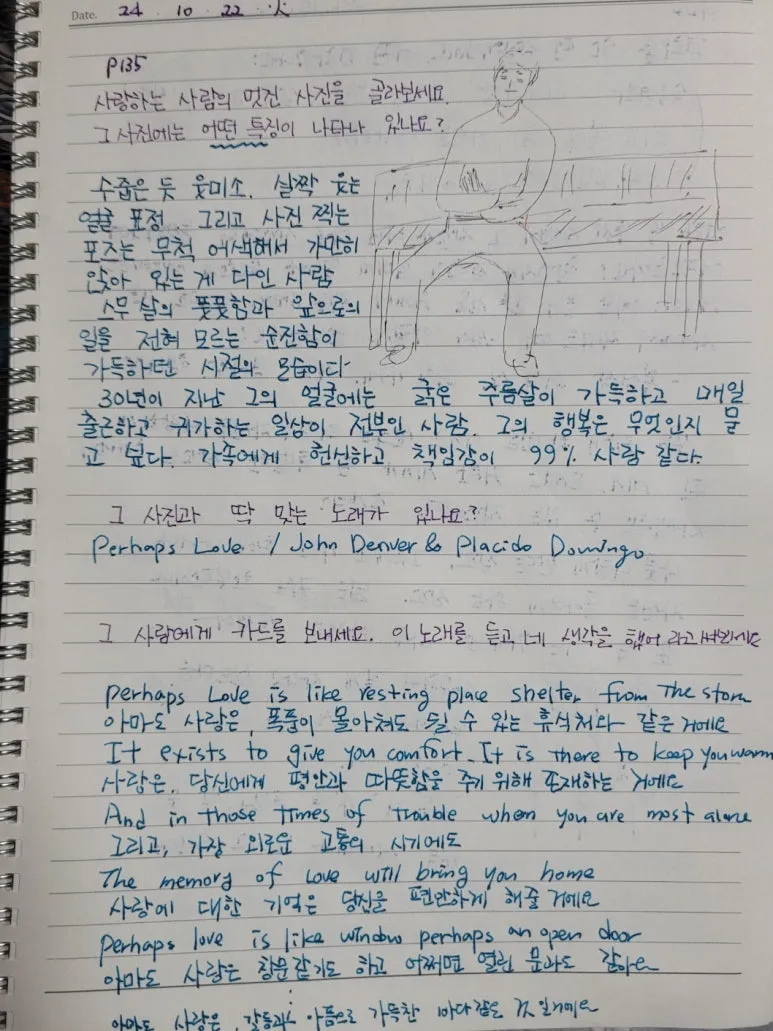 Date. 24 . 10 . 22 . 火
P135
사랑하는 사람의 멋진 사진을 골라보세요.
그 사진에는 어떤 특징이 나타나 있나요?
수줍은 듯 웃미소. 살짝 웃는
얼굴 표정. 그리고 사진 찍는
포즈는 무척 어색해서 가만히
앉아 있는 게 다인 사람
스무 살의 풋풋함과 앞으로의
일을 전혀 모르는 순진함이
가득하던 시절의 모습이다
30년이 지난 그의 얼굴에는 굵은 주름살이 가득하고 매일
출근하고 귀가하는 일상이 전부인 사람. 그의 행복은 무엇인지 묻
고 싶다. 가족에게 헌신하고 책임감이 99% 사람 같다.
그 사진과 딱 맞는 노래가 있나요?
Perhaps Love / John Denver & Placido Domingo
그 사람에게 카드를 보내세요. 이 노래를 듣고 네 생각을 했어 라고
Perhaps Love is like resting place shelter from The storm
아마도 사랑은, 폭풍이 몰아쳐도 쉴 수 있는 휴식처와 같은 거예요
It exists to give you comfort. It is there to keep you warm
사랑은, 당신에게 평안과 따뜻함을 주기 위해 존재하는 거예요
And in those times of trouble when you are most alone
그리고, 가장 외로운 고통의 시기에도
The memory of Love will bring you home
사랑에 대한 기억은 당신을 편안하게 해줄 거예요
Perhaps love is like window perhaps an open door
아마도 사랑은 창문같기도 하고 어쩌면 열린 문과도 같아요
아마도 사랑은, 갈등과 아픔으로 가득찬 바다같은 것일거예요